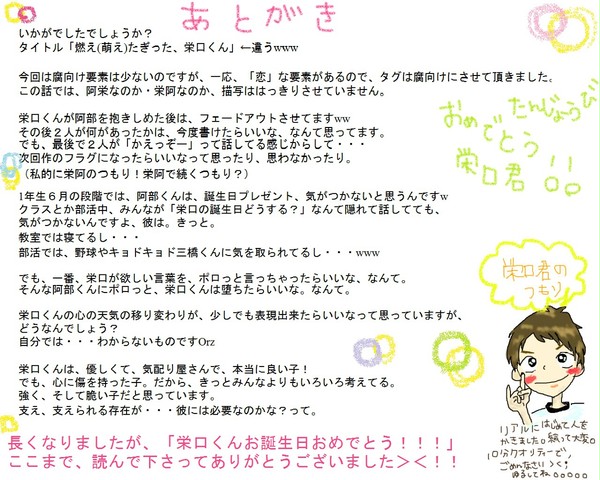 あとがき
いかがでしたでしょうか？
タイトル「燃え(萌え)たぎった、栄口くん」←違うwww
今回は腐向け要素は少ないのですが、一応、「恋」な要素があるので、タグは腐向けにさせて頂きました。
この話では、阿栄なのか・栄阿なのか、描写ははっきりさせていません。
栄口くんが阿部を抱きしめた後は、フェードアウトさせてますww
その後２人が何があったかは、今度書けたらいいな、なんて思ってます。
でも、最後で２人が「かえっぞー」って話してる感じからして・・・
次回作のフラグになったらいいなって思ったり、思わなかったり。
（私的に栄阿のつもり！栄阿で続くつもり？）
1年生６月の段階では、阿部くんは、誕生日プレゼント、気がつかないと思うんですw
クラスとか部活中、みんなが「栄口の誕生日どうする？」なんて隠れて話してても、
気がつかないんですよ、彼は。きっと。
教室では寝てるし・・・
部活では、野球やキョドキョド三橋くんに気を取られてるし・・・www
でも、一番、栄口が欲しい言葉を、ポロっと言っちゃったらいいな、なんて。
そんな阿部くんにポロっと、栄口くんは堕ちたらいいな。なんて。
栄口くんの心の天気の移り変わりが、少しでも表現出来たらいいなって思っていますが、
どうなんでしょう？
自分では・・・わからないものですOrz
栄口くんは、優しくて、気配り屋さんで、本当に良い子！
でも、心に傷を持った子。だから、きっとみんなよりもいろいろ考えてる。
強く、そして脆い子だと思っています。
支え、支えられる存在が・・・彼には必要なのかな？って。
長くなりましたが、「栄口くんお誕生日おめでとう！！！」
ここまで、読んで下さってありがとうございました＞＜！！
たんじょうび
おめでとう
栄口君!!
栄口君の
つもり
リアルにはじめて人を
かきました。絵って大変。
10分クオリティーで、
ごめんなさい＞＜；
ゆるしてね。。。。。